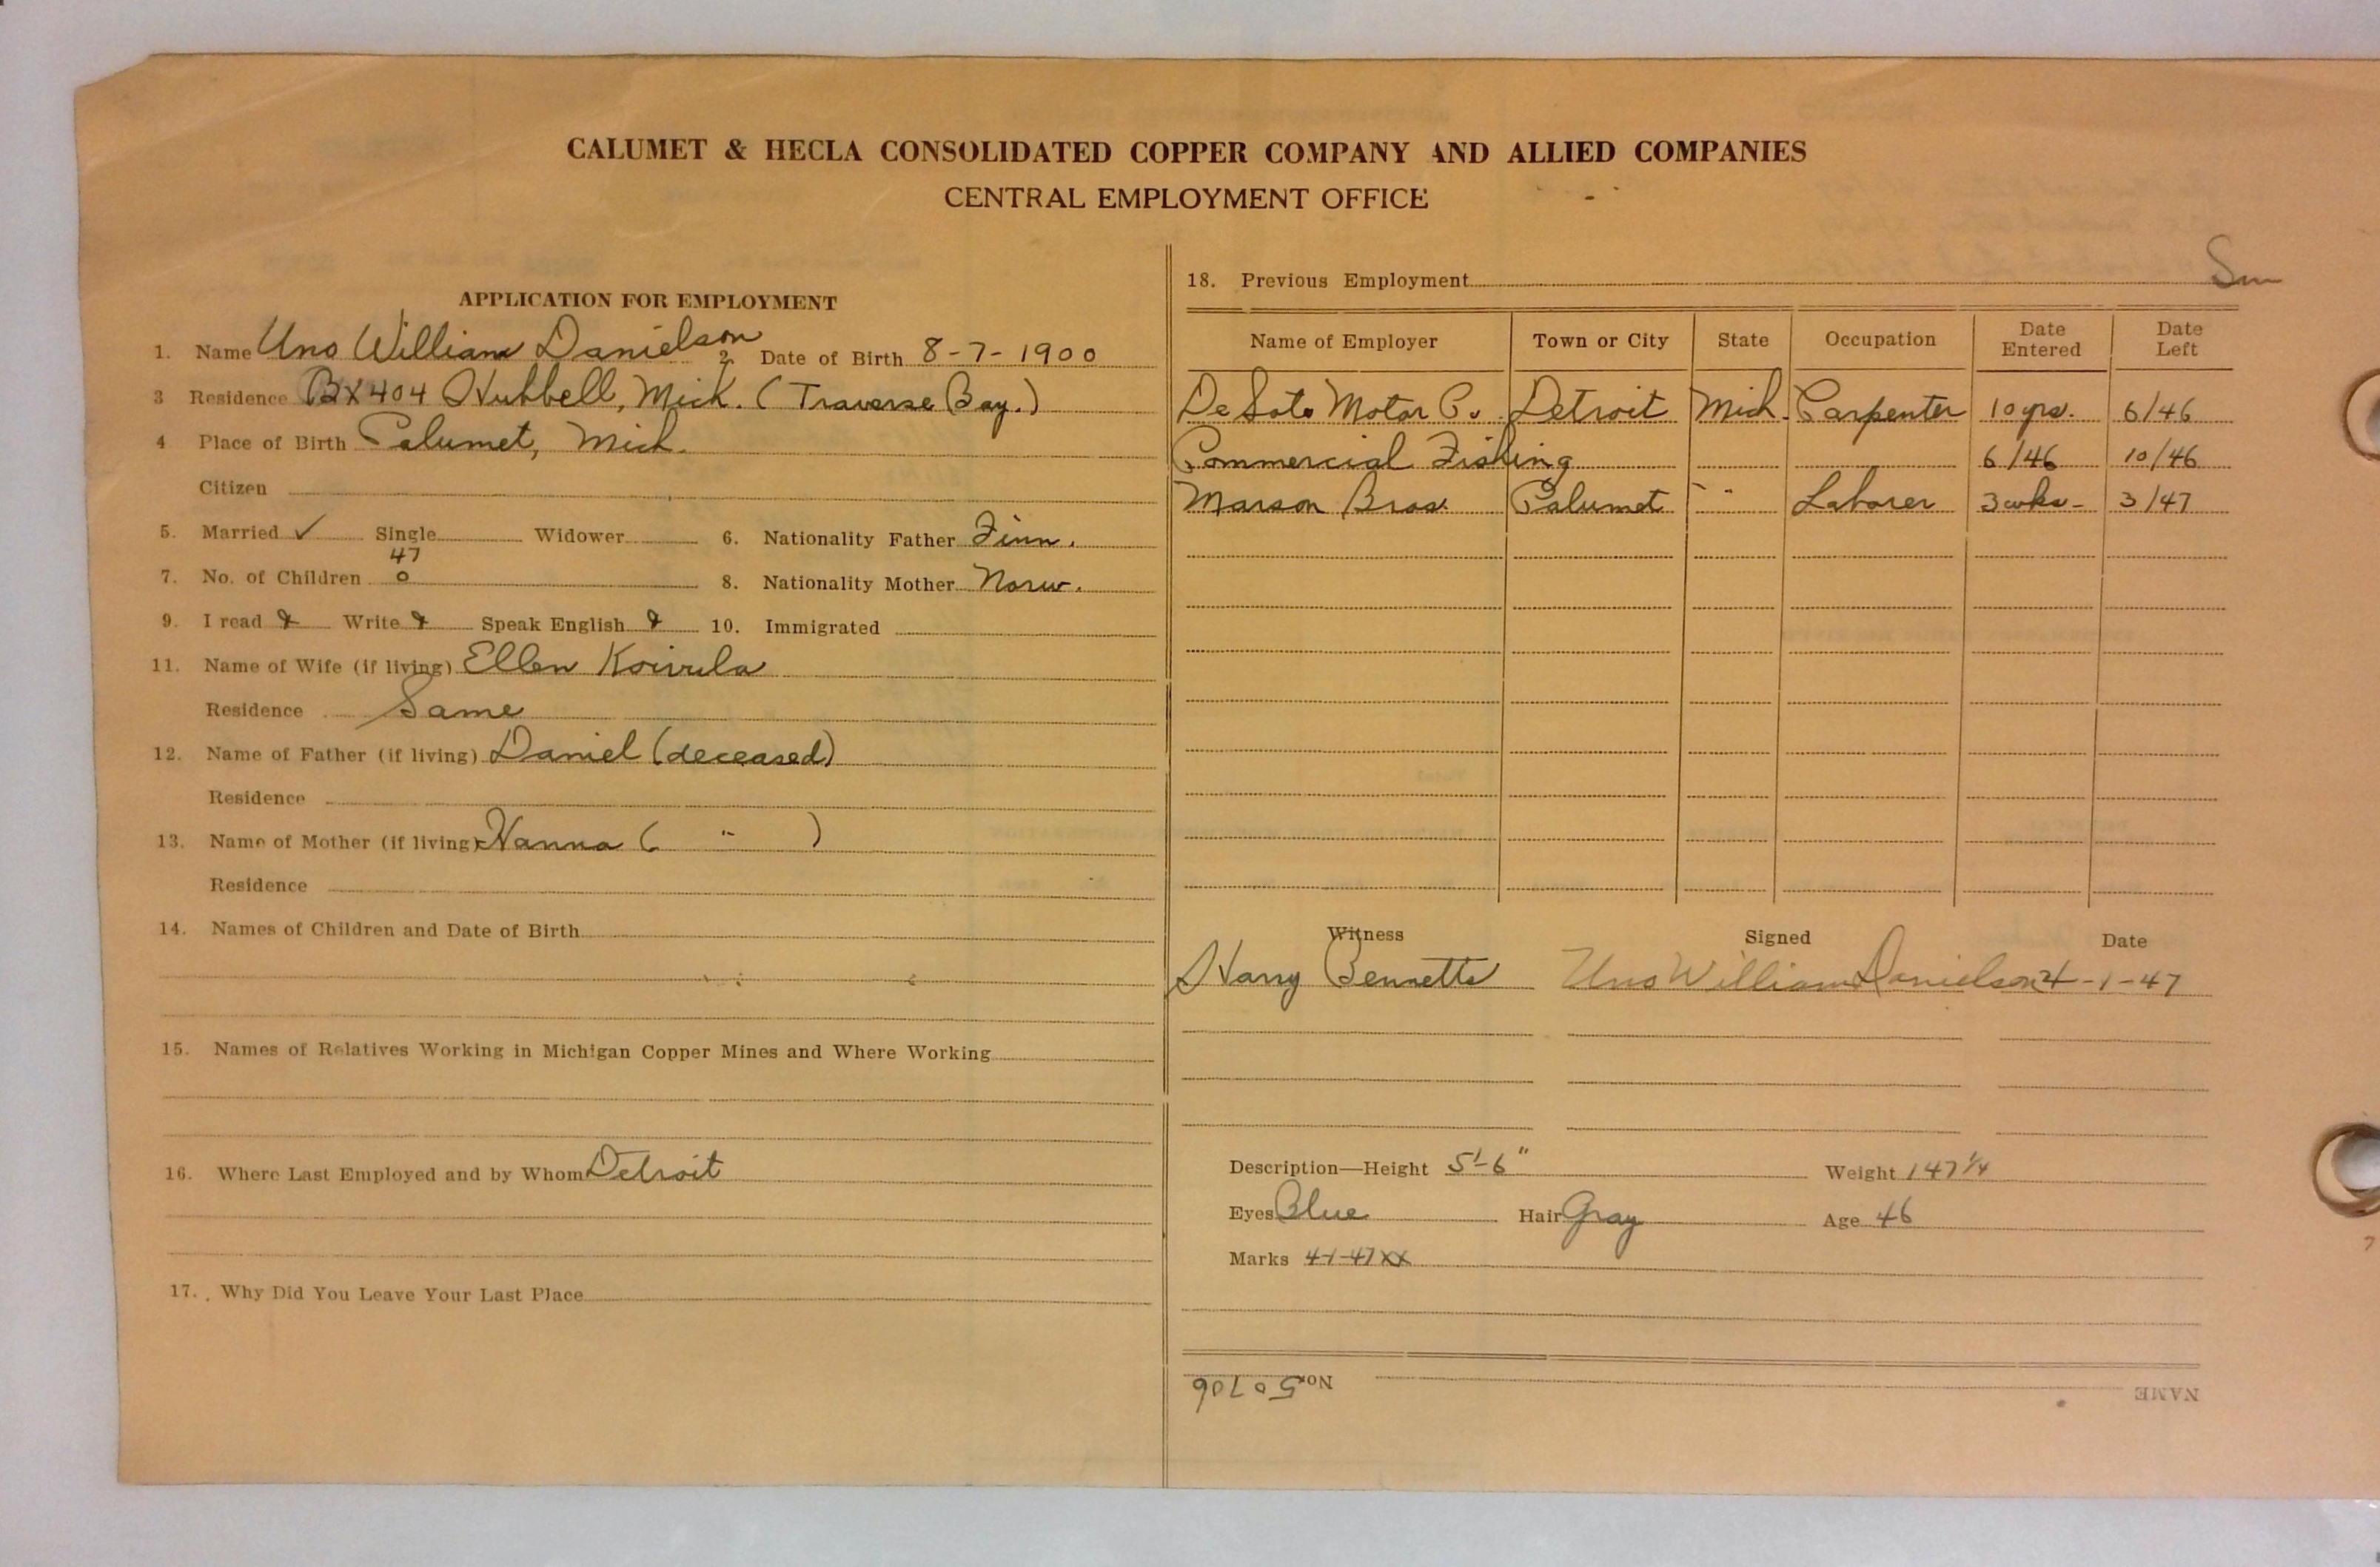 CALUMET & HECLA CONSOLIDATED COPPER COMPANY AND ALLIED COMPANIES
CENTRAL EMPLOYMENT OFFICE
APPLICATION FOR EMPLOYMENT
1. Name Uno William Danielson 2. Date of Birth 8-7-1900
3 Residence Bx 404 Hubbell, Mich. (Traverse Bay.)
4 Place of Birth Calumet, Mich.
Citizen
5. Married ✓ Single Widower 6. Nationality Father Finn.
47
7. No. of Children 0 8. Nationality Mother Norw.
9. I read Write Speak English 10. Immigrated
11. Name of Wife (if living) Ellen Koivula
Residence Same
12. Name of Father (if living) Daniel (deceased)
Residence
13. Name of Mother (if living) Hanna ( " )
Residence
14. Names of Children and Date of Birth
15. Names of Relatives Working in Michigan Copper Mines and Where Working
16. Where Last Employed and by Whom Detroit
17. Why Did You Leave Your Last Place
18. Previous Employment
Name of Employer Town or City State Occupation Date Entered Date Left
De Soto Motor Co Detroit Mich. Carpenter 10 yrs. 6/46
Commercial Fishing 6/46 10/46
Marson Bros. Calumet " Laborer 3 wks- 3/47
Witness Signed Date
Harry Bennetts Uno William Danielson 4-1-47
Description—Height 5'-6" Weight 147 1/4
Eyes Blue Hair Gray Age 46
Marks 4-1-47 xx
NAME No. 50706